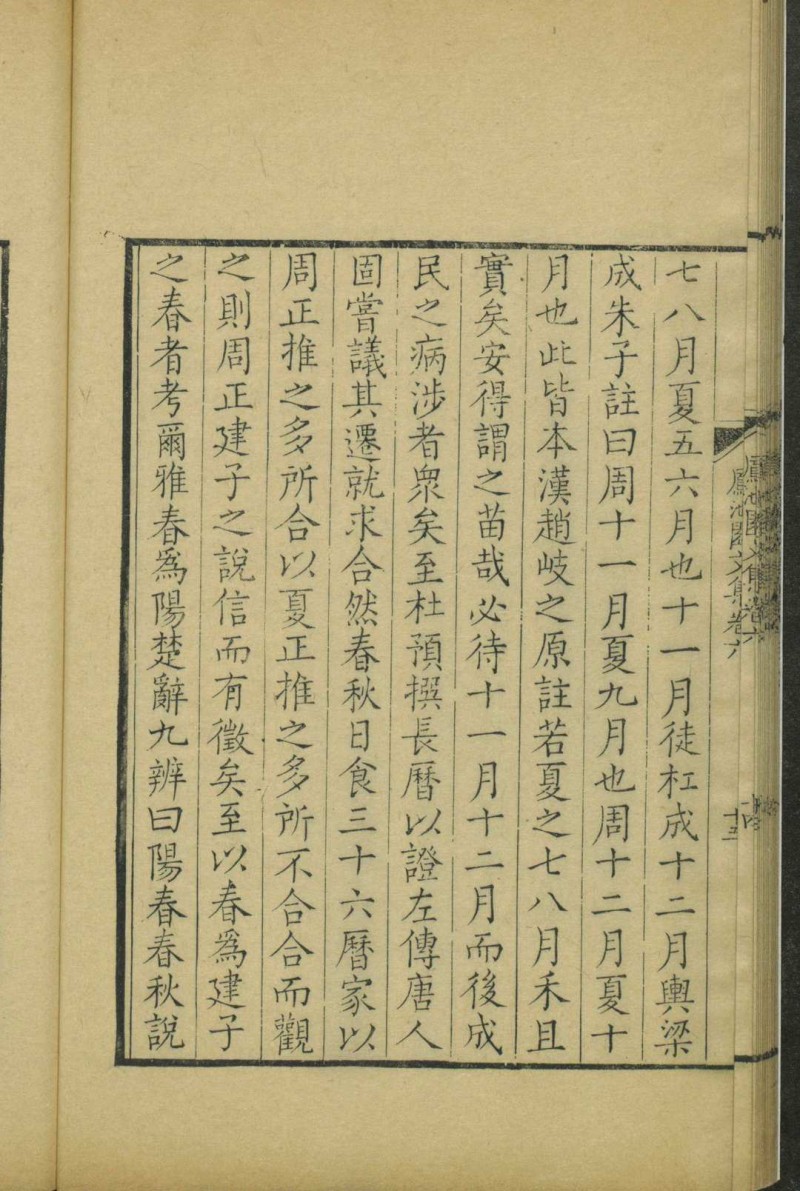 七八月夏五六月也十一月徒杠成十二月輿梁
成朱子註曰周十一月夏九月也周十二月夏十
月也此皆本漢趙岐之原註若夏之七八月禾且
實矣安得謂之苗哉必待十一月十二月而後成
民之病涉者衆矣至杜預撰長曆以證左傳唐人
固嘗議其遷就求合然春秋日食三十六曆家以
周正推之多所合以夏正推之多所不合合而觀
之則周正建子之說信而有徵矣至以春爲建子
之春者考爾雅春爲陽楚辭九辨曰陽春春秋說
鳳池園文集卷六
十三